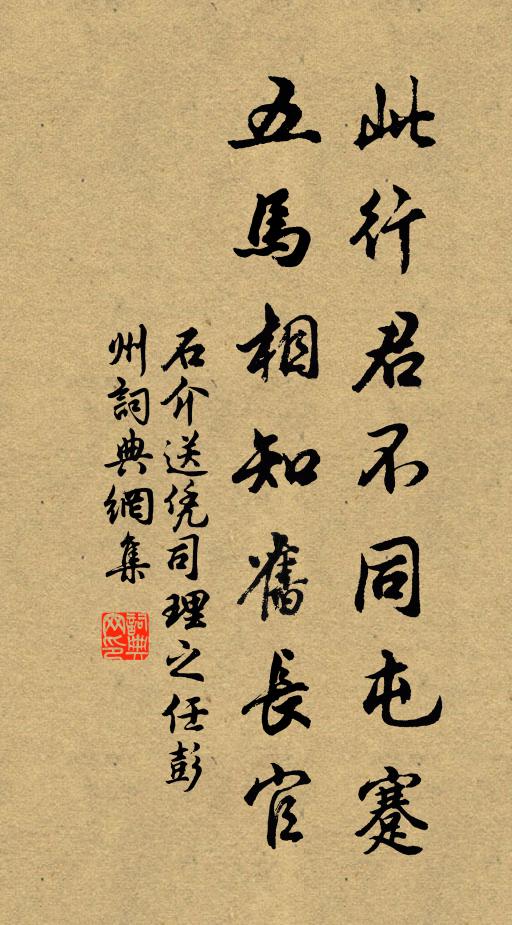 此行君不同屯蹇
五馬相知舊長官
石介送凭司理之任彭
州詞典網集
詞典網印